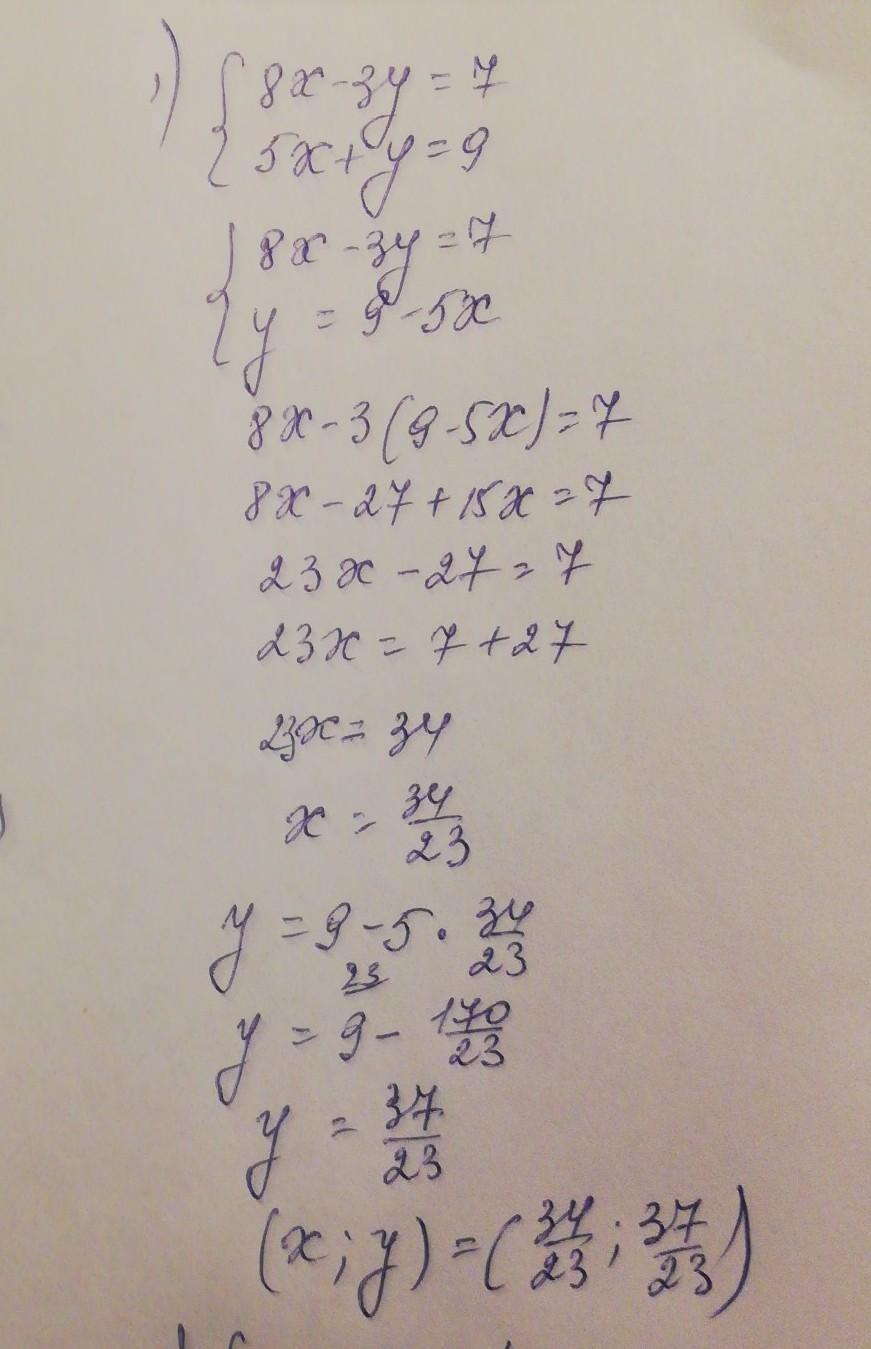 1) { 8x-3y=7
5x+y=9
{ 8x-3y=7
y = 9-5x
8x-3(9-5x)=7
8x-27+15x=7
23x-27=7
23x=7+27
23x=34
x = 34/23
y = 9-5·34/23
23
y = 9-170/23
y = 37/23
(x; y)=(34/23; 37/23)